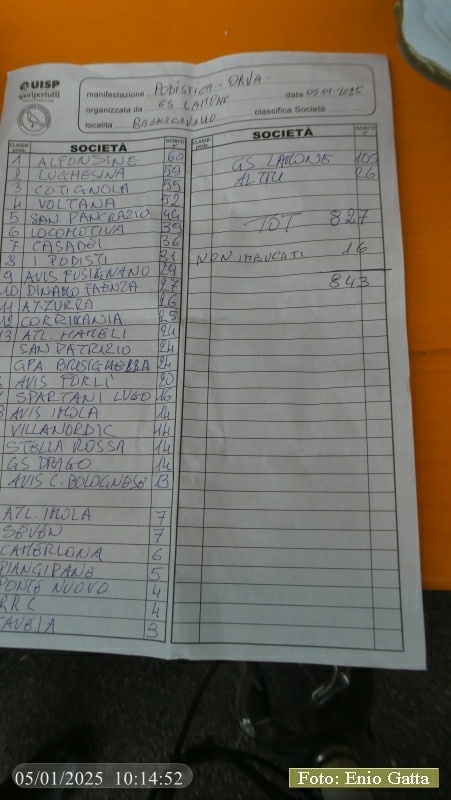 UISP
sportpertutti
manifestazione PODISTICA ORVA
data 05-01-2025
organizzata da GS LAMONE
classifica Società
località BAGNACAVALLO
SOCIETÀ
1 ALFONSINE 60
2 LUGHESINA 59
3 COTIGNOLA 55
4 VOLTANA 52
5 SAN PANCRAZIO
6 LOCOMOTIVA 39
7 CASADEI 36
8 I PODISTI 31
9 AVIS FUSIGNANO 29
10 DINAMO FAENZA 27
11 AZZURRA 26
12 CORRIMANIA 25
13 ATL. MAMELI 24
SAN PATRIZIO 24
GPA BRISIGHELLA 24
AVIS FORLÌ 20
SPARTANI LUGO 16
AVIS IMOLA 14
VILLANORDIC 14
STELLA ROSSA 14
GS DRAGO 14
AVIS C. BOLOGNESE 13
ATL. IMOLA 7
SEVEN 7
CAMERLONA 6
PIANGIPANE 5
PONTE NUOVO 4
RRC 4
TAVELA 3
SOCIETÀ
GS LAMONE 105
ALTRI 26
TOT 827
NON IMBUCATI 16
843
05/01/2025 10:14:52
Foto: Enio Gatta